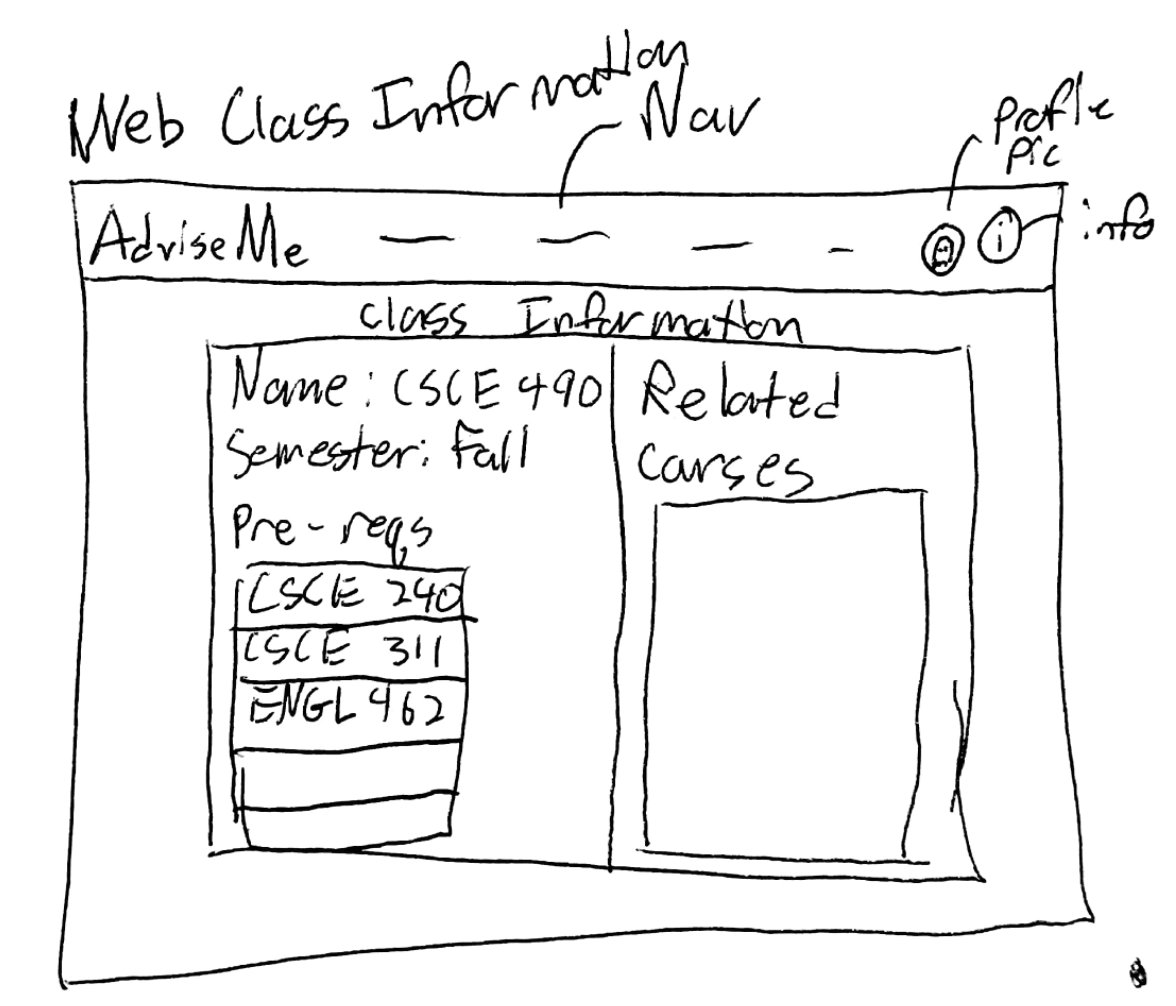 Web Class Information
Nav
Profile
pic
AdviseMe
i
info
Class Information
Name: CSCE 490
Semester: Fall
Pre-reqs
CSCE 240
CSCE 311
ENGL 462
Related
courses